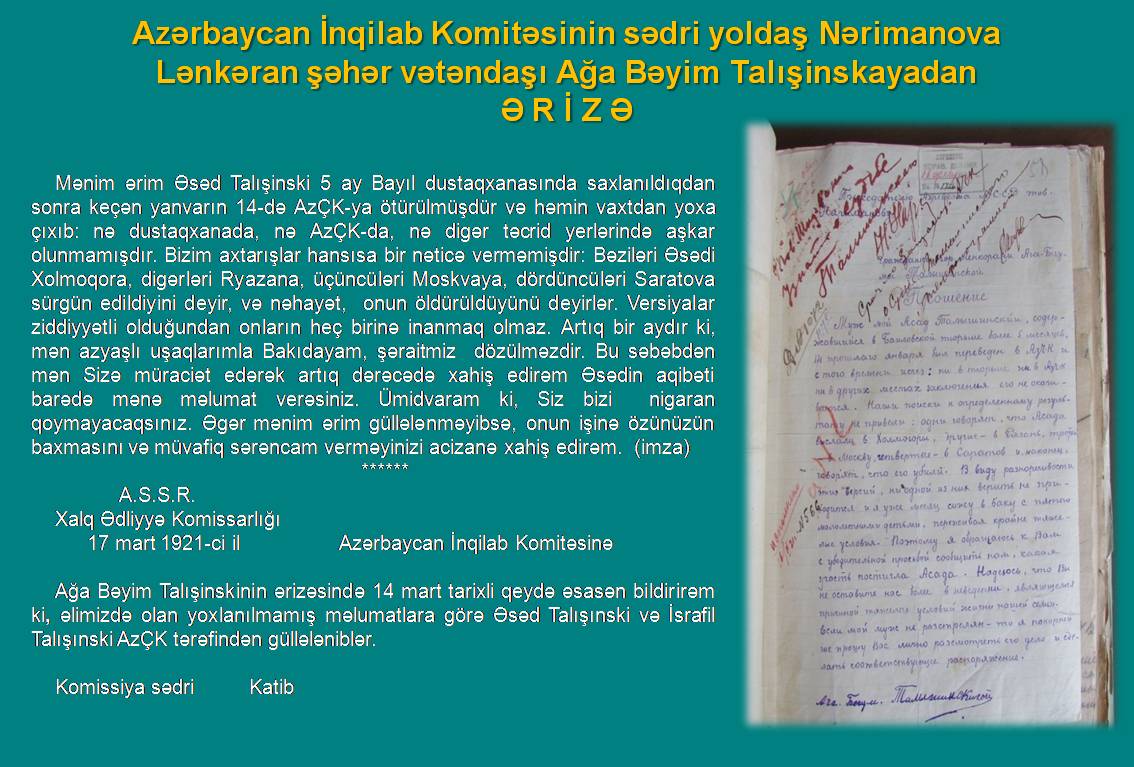 Azərbaycan İnqilab Komitəsinin sədri yoldaş Nərimanova
Lənkəran şəhər vətəndaşı Ağa Bəyim Talışinskayadan
Ə R İ Z Ə
Mənim ərim Əsəd Talışinski 5 ay Bayıl dustaqxanasında saxlanıldıqdan
sonra keçən yanvarın 14-də AzÇK-ya ötürülmüşdür və həmin vaxtdan yoxa
çıxıb: nə dustaqxanada, nə AzÇK-da, nə digər təcrid yerlərində aşkar
olunmamışdır. Bizim axtarışlar hansısa bir nəticə verməmişdir: Bəziləri Əsədi
Xolmoqora, digərləri Ryazana, üçüncüləri Moskvaya, dördüncüləri Saratova
sürgün edildiyini deyir, və nəhayət, onun öldürüldüyünü deyirlər. Versiyalar
ziddiyyətli olduğundan onların heç birinə inanmaq olmaz. Artıq bir aydır ki,
mən azyaşlı uşaqlarımla Bakıdayam, şəraitmiz dözülməzdir. Bu səbəbdən
mən Sizə müraciət edərək artıq dərəcədə xahiş edirəm Əsədin aqibəti
barədə mənə məlumat verəsiniz. Ümidvaram ki, Siz bizi nigaran
qoymayacaqsınız. Əgər mənim ərim güllələnməyibsə, onun işinə özünüzün
baxmasını və müvafiq sərəncam verməyinizi acizanə xahiş edirəm. (imza)
******
A.S.S.R.
Xalq Ədliyyə Komissarlığı
17 mart 1921-ci il Azərbaycan İnqilab Komitəsinə
Ağa Bəyim Talışinskinin ərizəsində 14 mart tarixli qeydə əsasən bildirirəm
ki, əlimizdə olan yoxlanılmamış məlumatlara görə Əsəd Talışınski və İsrafil
Talışınski AzÇK tərəfindən güllələniblər.
Komissiya sədri Katib
Прошение
Муж мой Асад Талышинский, содер-
жавшийся в Баиловской тюрьме более 5 месяцев,
14 прошлого января был переведен в АзЧК и
с того времени исчез: ни в тюрьме ни в АзЧК
ни в других местах заключения его не оказы-
вается. Наши поиски к определенному резуль-
тату не привели: одни говорят, что Асада
выслали в Холмогоры, другие - в Рязань, третьи
Москву, четвертые - в Саратов и, наконец,
говорят, что его убили. В виду разноречивости
этих версий, ни одной из них верить не при-
ходится и я уже месяц сижу в Баку с пятью
малолетними детьми, переживая крайне тяже-
лые условия. Поэтому я обращаюсь к Вам
с убедительной просьбой сообщить нам, какая
участь постигла Асада. Надеюсь, что Вы
не оставите нас более в неведении, являющемся
причиной тяжелых условий жизни нашей семьи.
Если мой муж не расстрелян - то я покорней
ше прошу Вас лично рассмотреть его дело и сде-
лать соответствующее распоряжение.
Ага Бегум Талышинской